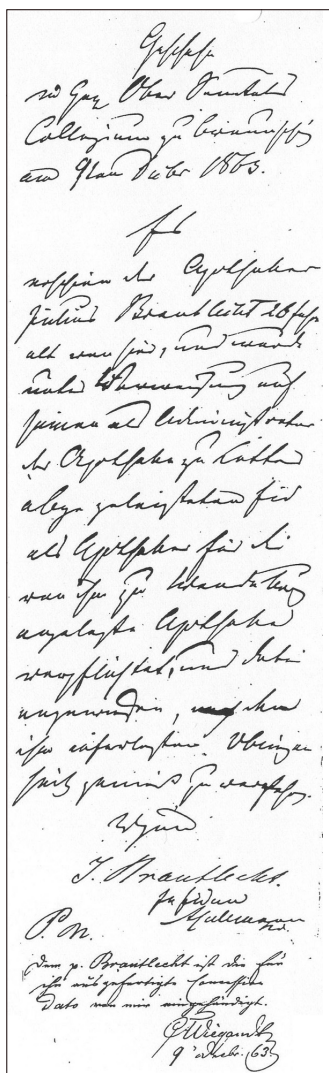 Geschehen
im Herz. Ober Sanitäts
Collegium zu Braunschw
am 9ten Decbr 1863.
Es
erschien der Apotheker
Julius Brantlecht 26 Jahr
alt und wurde
unter Verweisung auf
seinen als Administrator
der Apotheke zu
abgeleisteten Eid
als Apotheker für die
von ihm zu Wendeburg
angelegte Apotheke
verpflichtet, und dabei
angewiesen,
ihm auferlegten
gemäß zu verfahren.
J. Brantlecht.
in fidem
P. M.
Dem p. Brantlecht ist die für
ihn ausgefertigte Concession
dato von mir eingehändigt.
CWiegandt
9 decbr. 63.